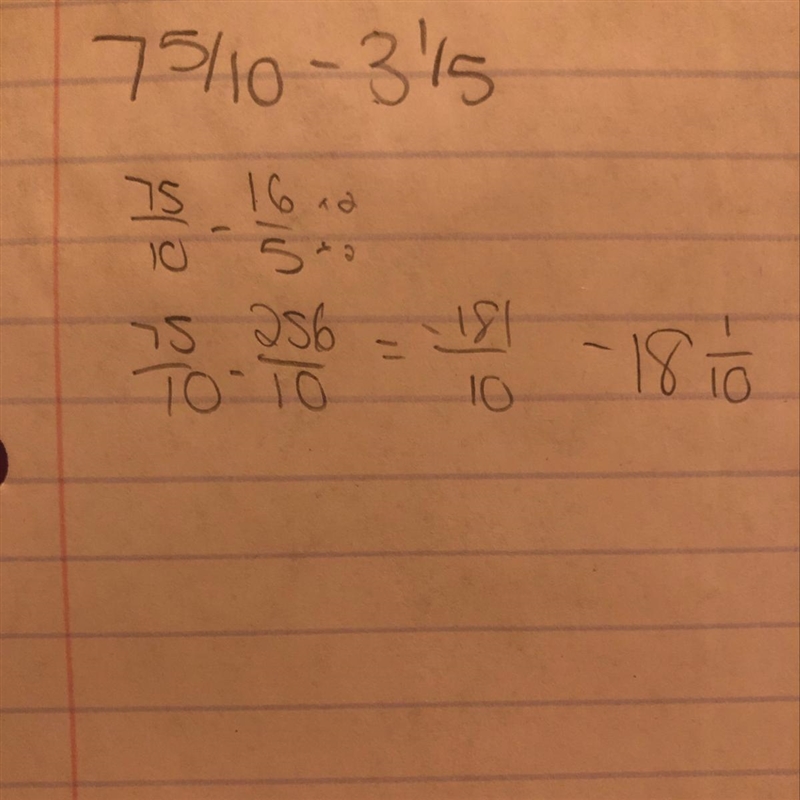 7 5/10 - 3 1/5
75/10 - 16/5 ×2 ×2
75/10 - 256/10 = -181/10 -18 1/10